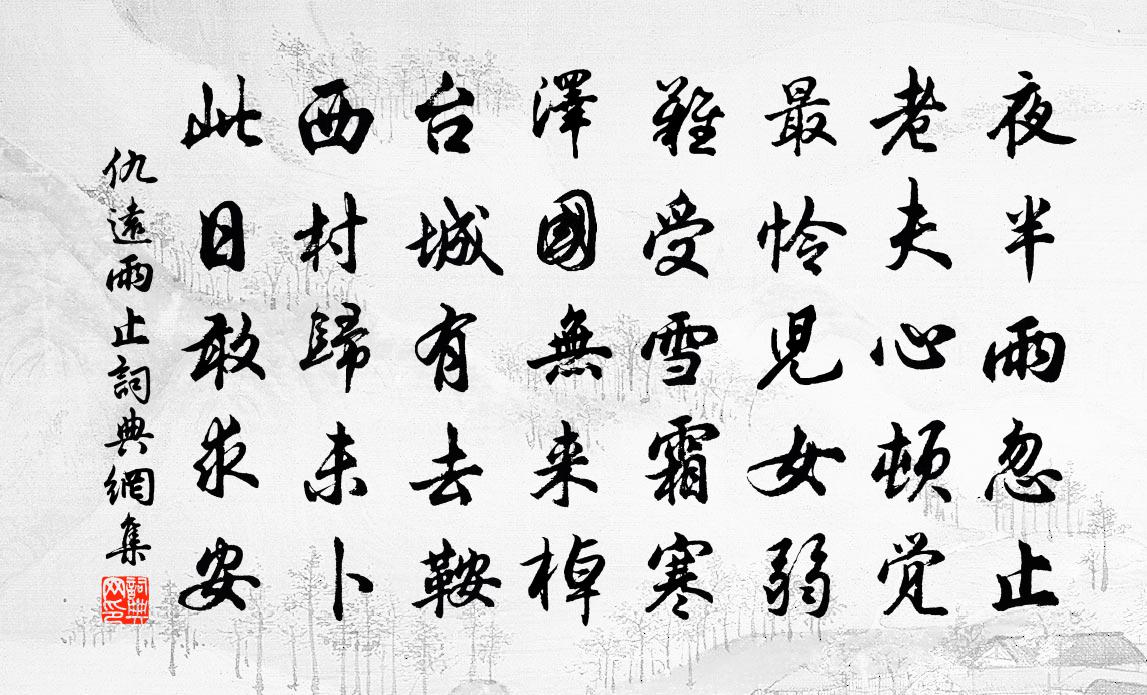 夜半雨忽止
老夫心顿觉
最怜兒女弱
難受雪霜寒
澤國無来棹
台城有去鞍
西村歸未卜
此日敢求安
仇遠雨止詞典網集
詞典网印